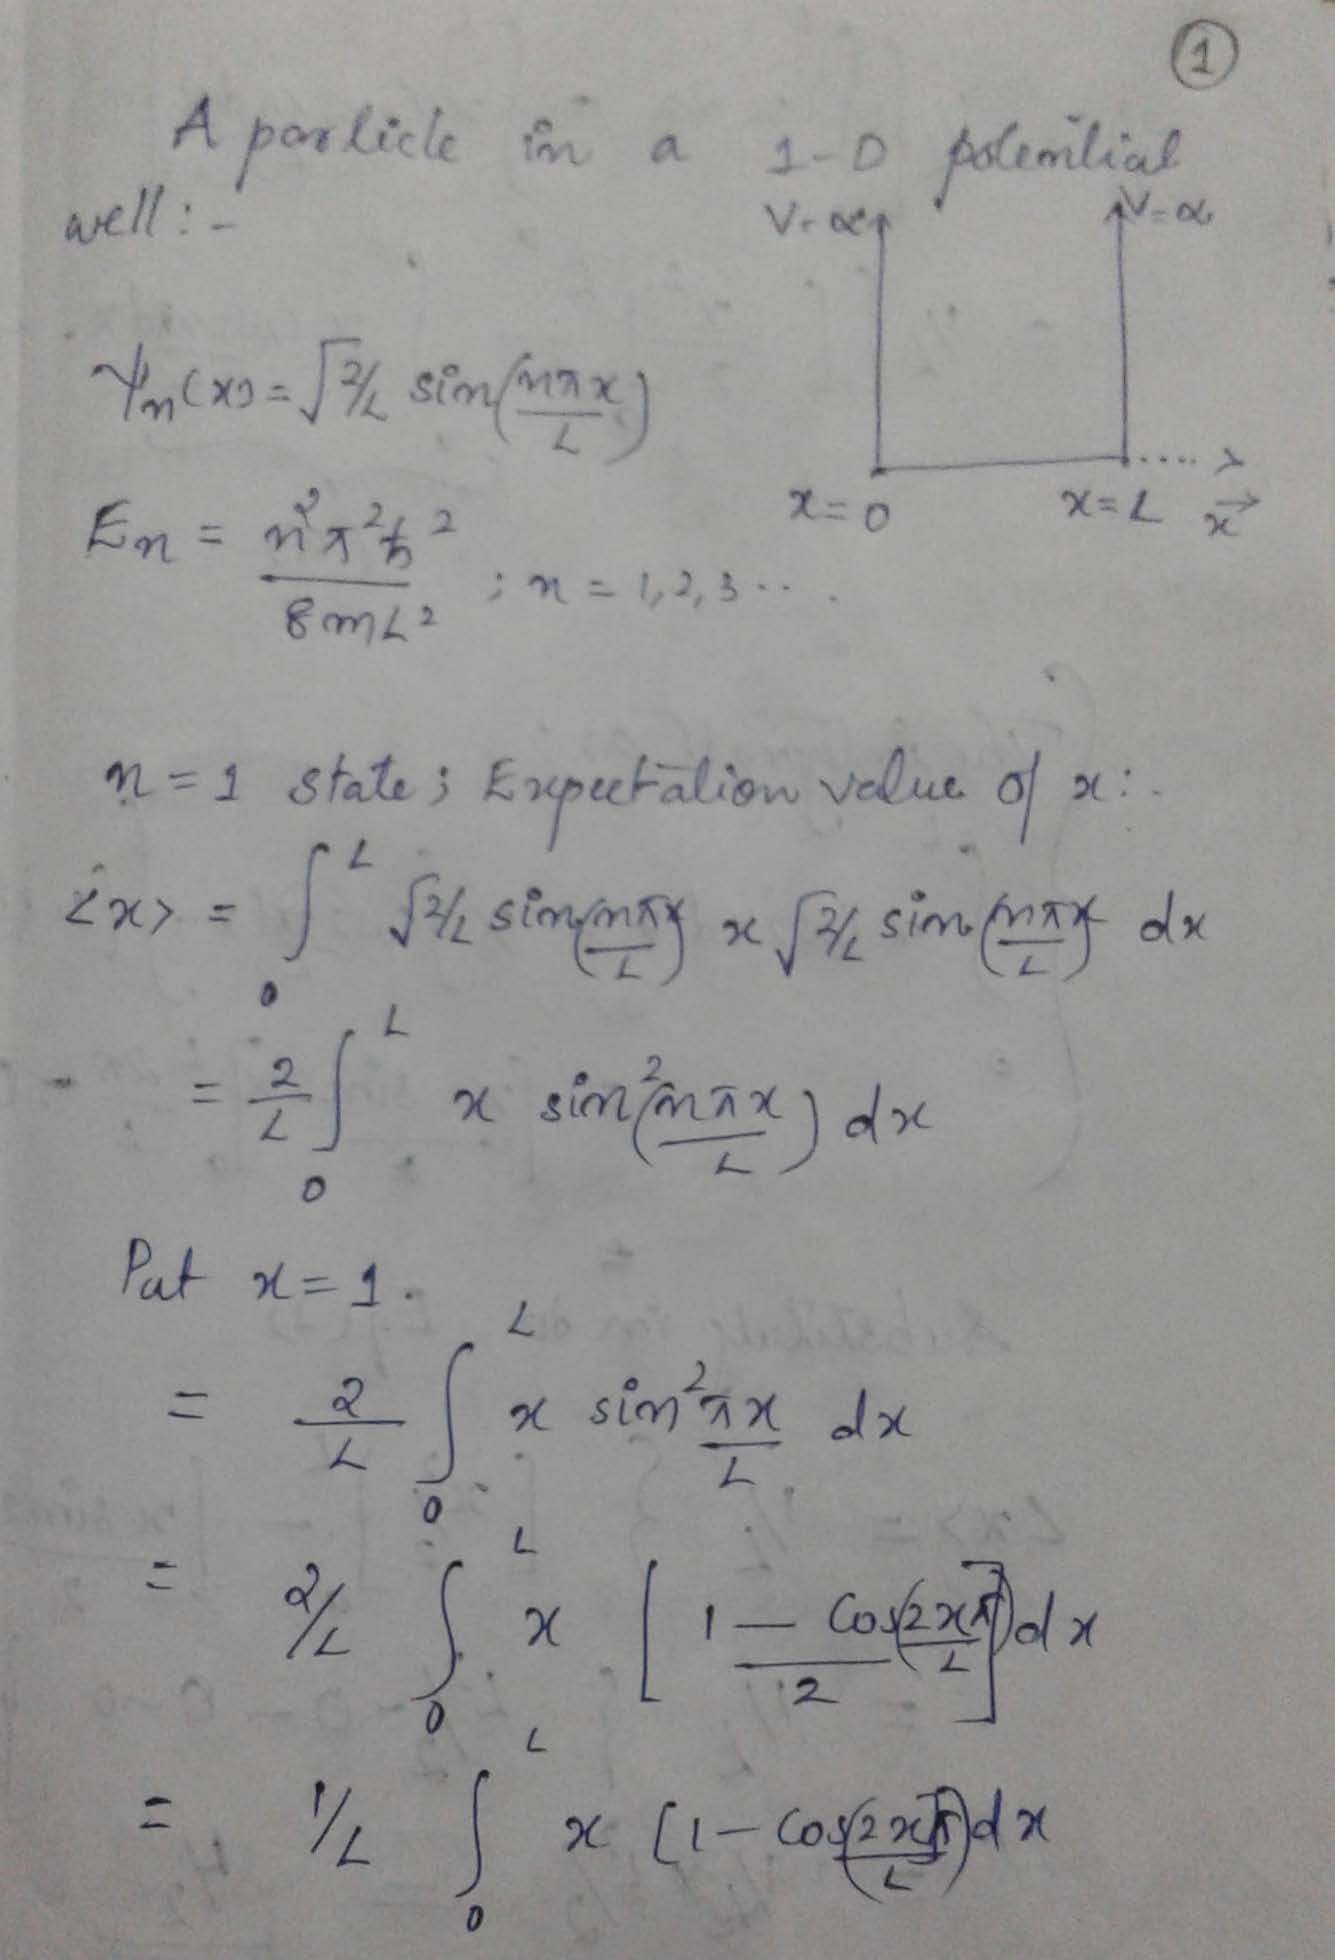 1
A particle in a 1-D potential
well :-
V=∝ V=∝
ψn(x) = √2/L sin(nπx/L)
x=0 x=L x→
En = n²π²ħ²/8mL² ; n = 1,2,3 ....
n=1 state; Expectation value of x:.
<x> = ∫₀ᴸ √2/L sin(nπx/L) x √2/L sin(nπx/L) dx
= 2/L ∫₀ᴸ x sin²(nπx/L) dx
Put x=1.
= 2/L ∫₀ᴸ x sin²πx/L dx
= 2/L ∫₀ᴸ x [1 - Cos(2xπ/L)/2] dx
= 1/L ∫₀ᴸ x [1 - Cos(2xπ/L)] dx